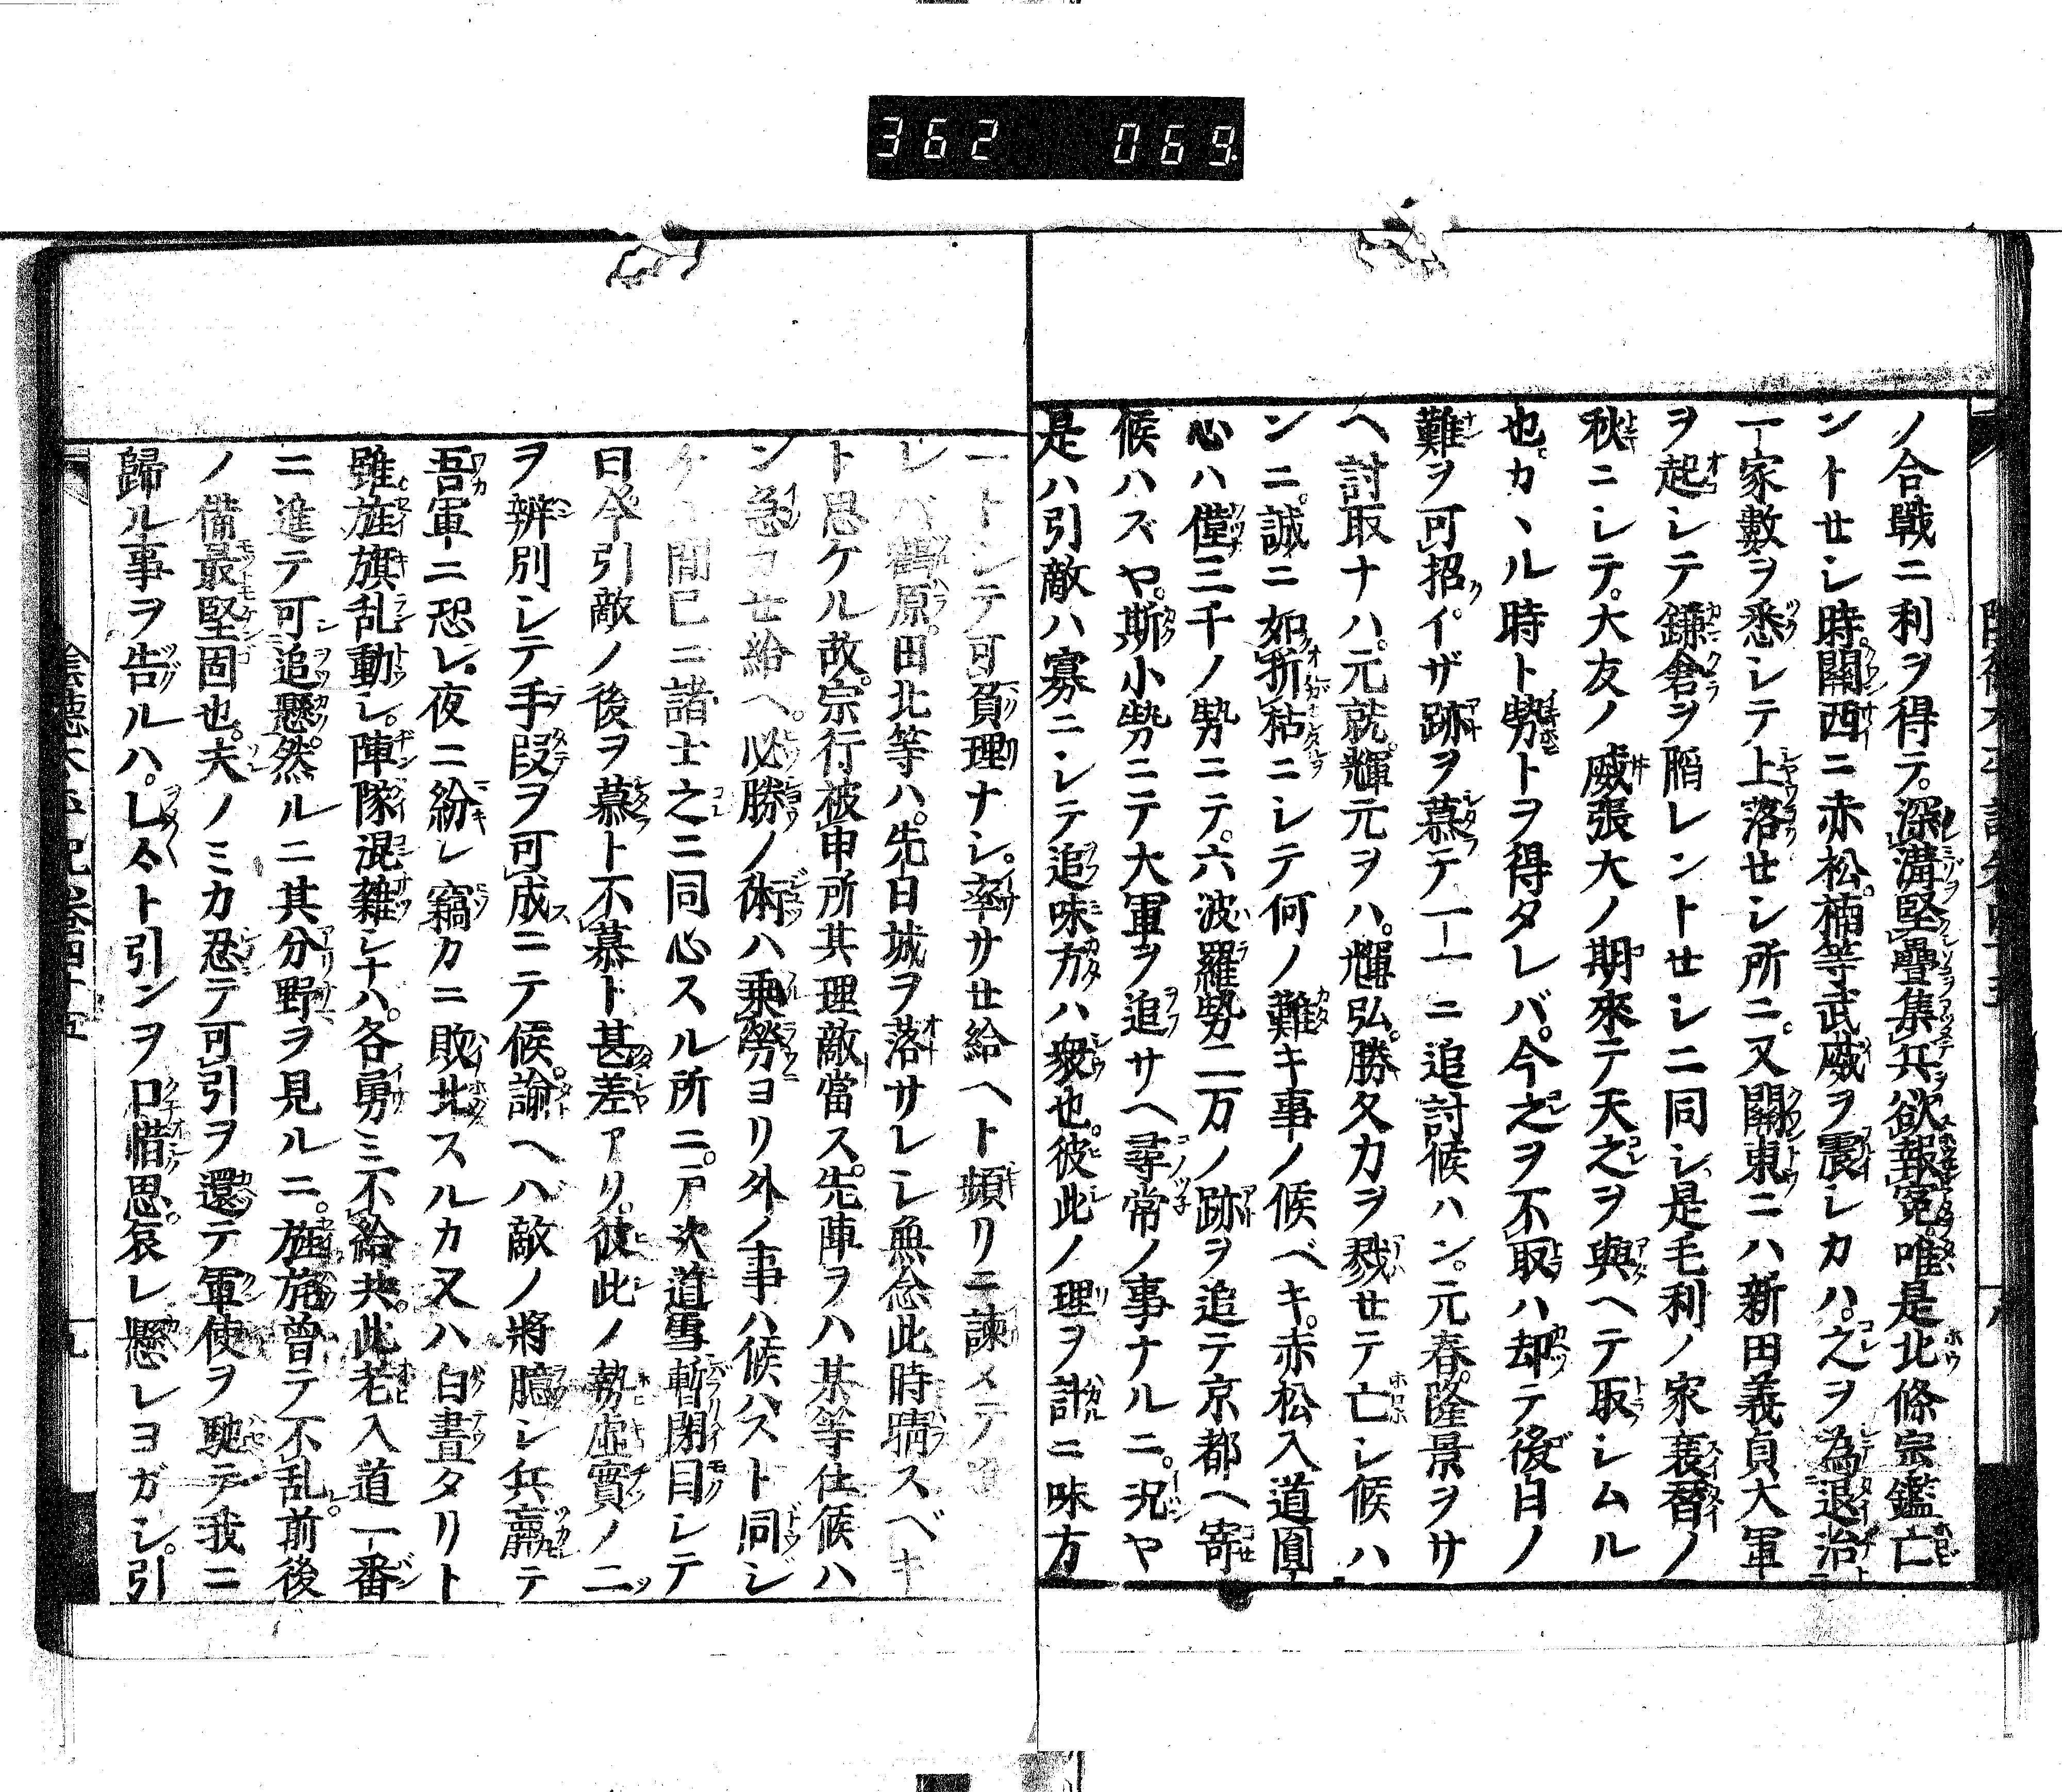 362 069
ノ合戰ニ利ヲ得テ。深溝堅壘集兵欲報冤。唯是北條宗鑑亡
ントセシ時。關西ニ赤松。楠等武威ヲ震シカハ。之ヲ為退治
一家數ヲ悉シテ上落セシ所ニ。又關東ニハ新田義貞大軍
ヲ起シテ鎌倉ヲ䧟レントセシニ同シ。是毛利ノ家衰暦ノ
秋ニシテ。大友ノ威張大ノ期來テ天之ヲ與ヘテ取シムル
也。カヽル時ト勢トヲ得タレバ。今之ヲ不取ハ却テ後日ノ
難ヲ可招。イザ跡ヲ慕テ一一ニ追討候ハン。元春。隆景ヲサ
ヘ討取ナハ。元就。輝元ヲハ。輝弘。勝久カヲ戮セテ亡シ候ハ
ンニ。誠ニ如折枯ニシテ何ノ難キ事ノ候ベキ。赤松入道圓
心ハ僅三千ノ勢ニテ。六波羅勢二万ノ跡ヲ追テ京都ヘ寄
候ハズヤ。斯小勢ニテ大軍ヲ追サヘ尋常ノ事ナルニ。况ヤ
是ハ引敵ハ寡ニシテ追味方ハ衆也。彼此ノ理ヲ計ニ味方
一トシテ可負理ナシ。率サセ給ヘト頻リニ諫メテ
レバ鶴原。田北等ハ。先日城ヲ落サレシ無念此時晴スベキ
ト思ケル故。宗行被申所其理敵當ス。先陣ヲハ某等仕候ハ
ン急コセ給ヘ。必勝ノ術ハ乗勞ヨリ外ノ事ハ候ハスト同シ
ケ間已ニ諸士之ニ同心スル所ニ。戸次道雪暫閉目シテ
曰今引敵ノ後ヲ慕ト不慕ト甚差アリ。彼此ノ勢虚實ノ二
ヲ辨別シテ手段ヲ可成ニテ候。諭ヘハ敵ノ將臆シ兵羸テ
吾軍ニ恐レ。夜ニ紛レ竊カニ敗北スルカ又ハ白晝タリト
雖旌旗乱動シ。陣隊混雜シナハ。各勇ミ不給共。此老入道一番
ニ進テ可追懸。然ルニ其分野ヲ見ルニ。旌旄曾テ不乱。前後
ノ備最堅固也。夫ノミカ忍テ可引ヲ還テ軍使ヲ馳テ我ニ
歸ル事ヲ告ルハ。シ〻ト引ンヲ口惜思。哀レ懸レヨガシ。引
陰德太平記卷四十五
九